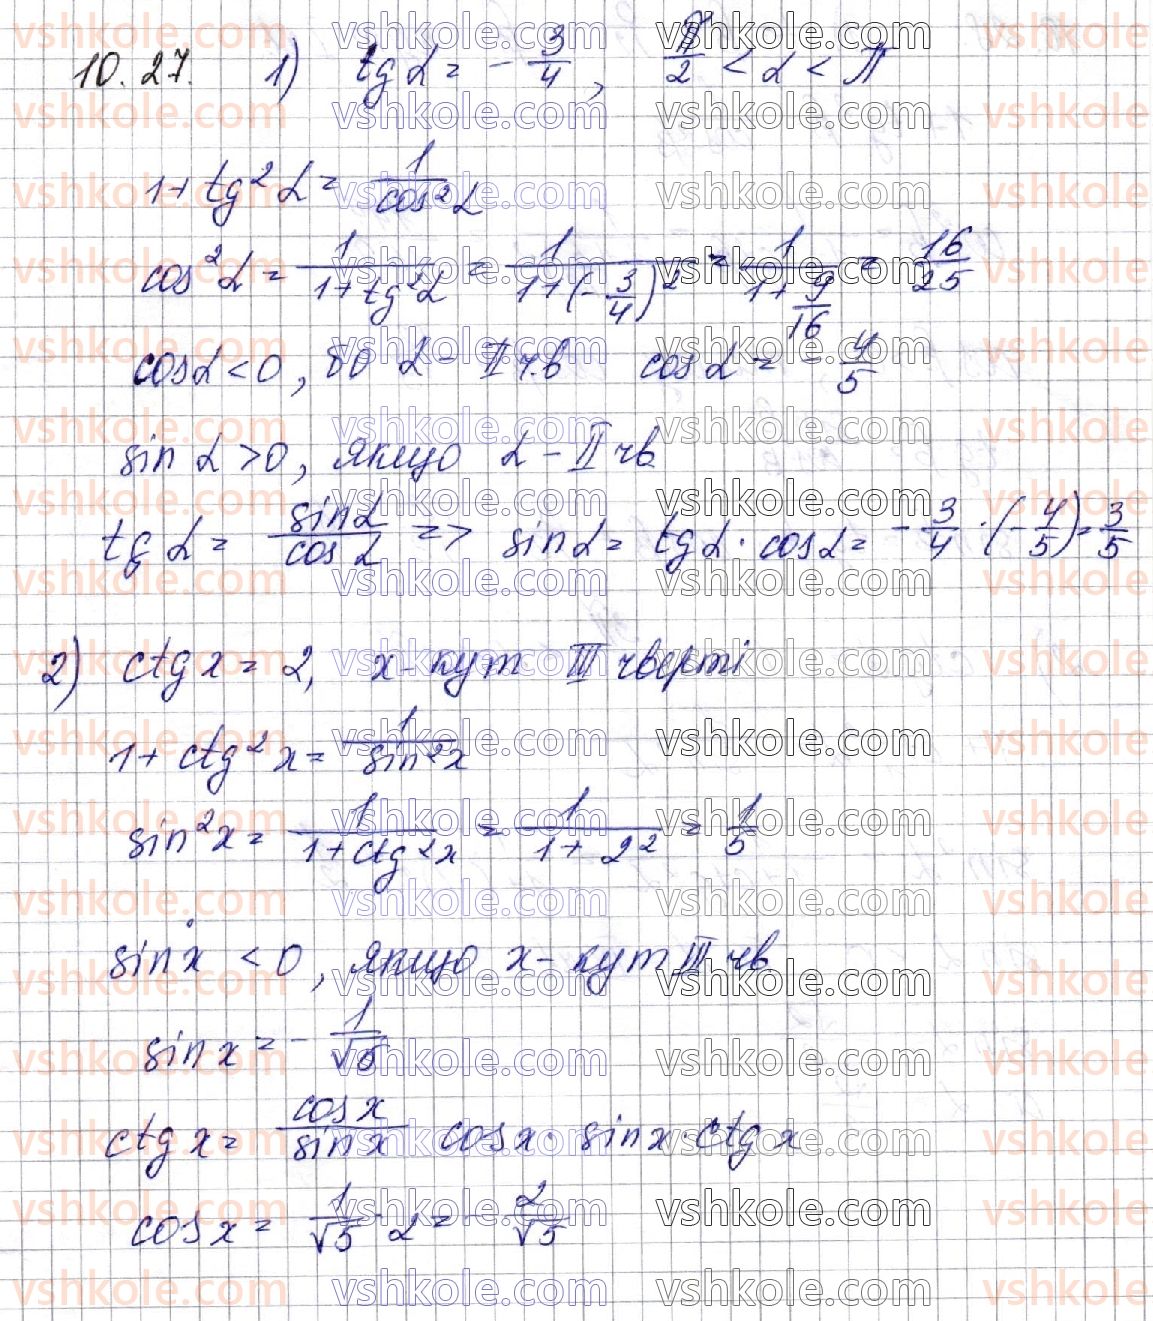 10.27. 1) tg α = - 3/4, π/2 < α < π
1 + tg² α = 1/cos² α
cos² α = 1/(1 + tg² α) = 1/(1 + (-3/4)²) = 1/(1 + 9/16) = 16/25
cos α < 0, бо α - II чв cos α = - 4/5
sin α > 0, якщо α - II чв
tg α = sin α/cos α => sin α = tg α · cos α = - 3/4 · (- 4/5) = 3/5
2) ctg x = 2, x - кут III чверті
1 + ctg² x = 1/sin² x
sin² x = 1/(1 + ctg² x) = 1/(1 + 2²) = 1/5
sin x < 0, якщо x - кут III чв
sin x = - 1/√5
ctg x = cos x/sin x cos x · sin x · ctg x
cos x = 1/√5 · 2 = - 2/√5
vshkole.com